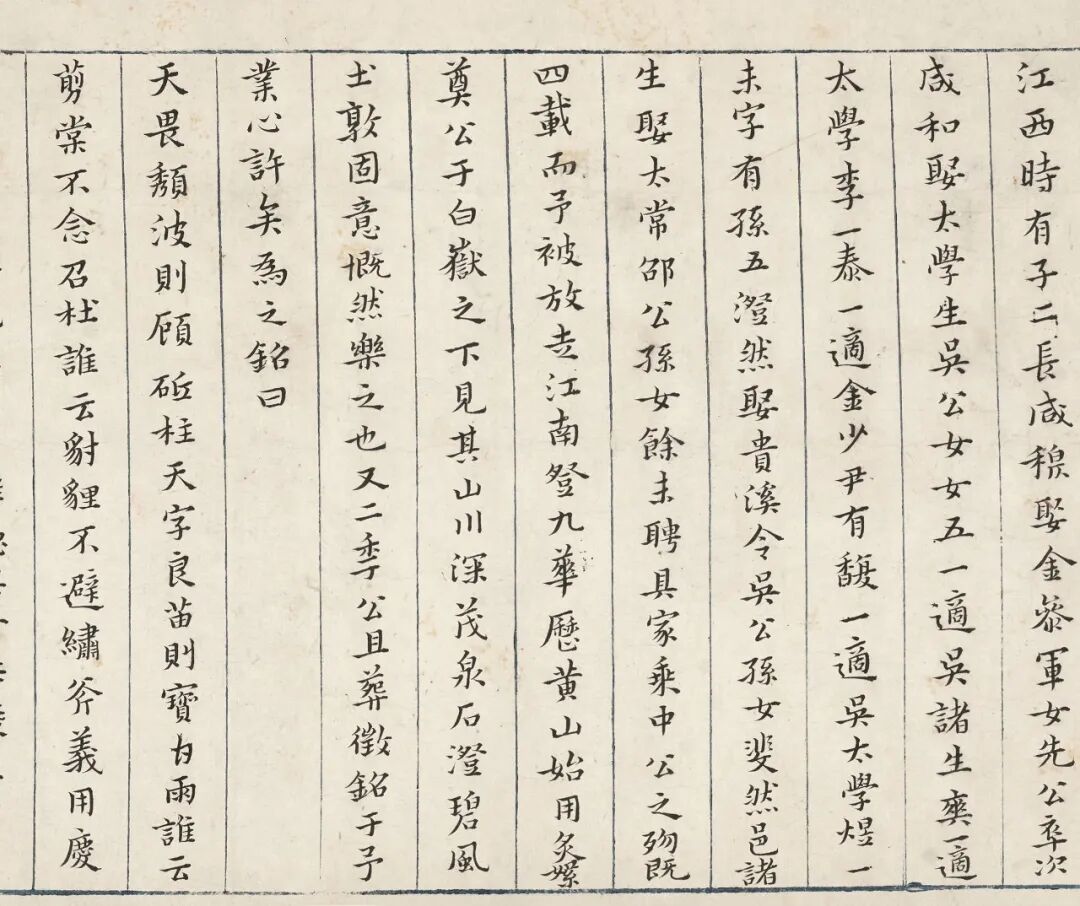 江西時有子二長咸穆娶金參軍女先公卒次
咸和娶太學生吳公女女五一適吳諸生奭一適
太學李一泰一適金少尹有馥一適吳太學煜一
未字有孫五澄然娶貴溪令吳公孫女斐然邑諸
生娶太常邵公孫女餘未聘具家乘中公之歿既
四載而予被放去江南登九華歷黃山始用炙
奠公于白嶽之下見其山川深茂泉石澄碧風
土敦固意慨然樂之也又二季公且葬徵銘于予
業心許矣為之銘曰
天畏頹波則頎砥柱天字良苗則寶甘雨誰云
剪棠不念召杜誰云豺貍不避繡斧義用慶